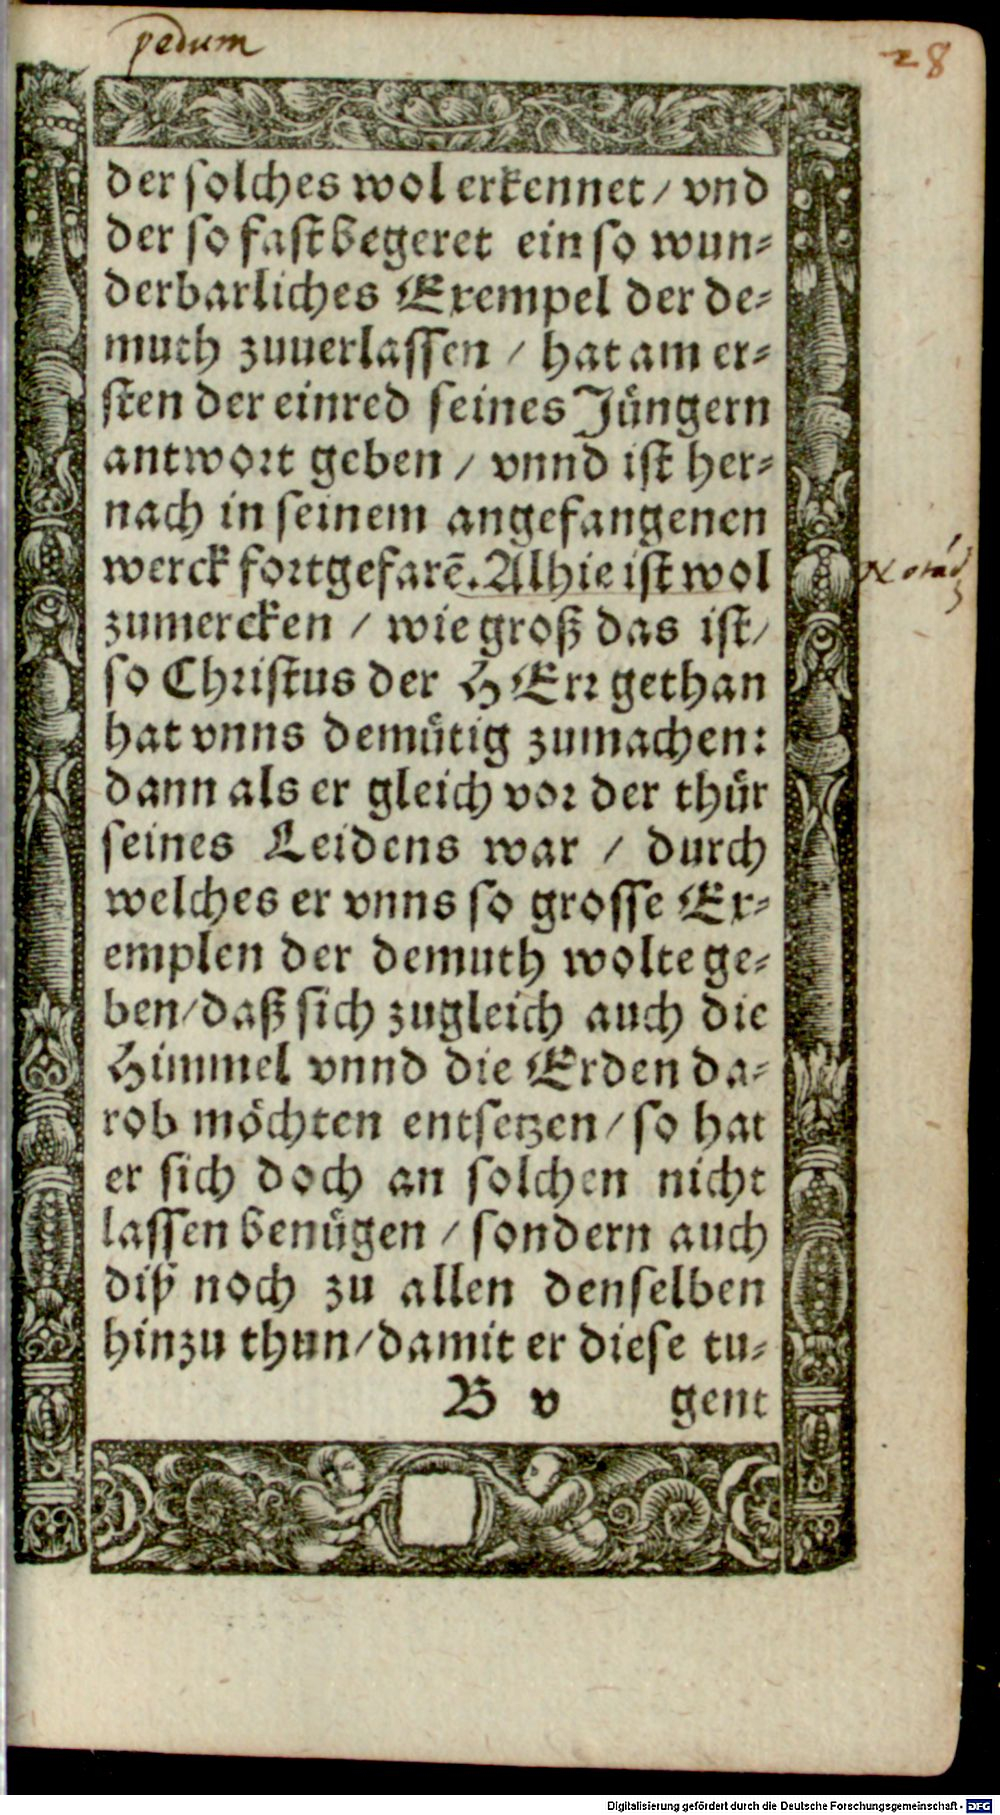 pedum
28
der solches wol erkennet / vnd
der so fast begeret ein so wun⸗
derbarliches Exempel der de⸗
muth zuuerlassen / hat am er⸗
sten der einred seines Jüngern
antwort geben / vnnd ist her⸗
nach in seinem angefangenen
werck fortgefarē. Alhie ist wol
zumercken / wie groß das ist /
so Christus der HErr gethan
hat vnns demütig zumachen:
dann als er gleich vor der thür
seines Leidens war / durch
welches er vnns so grosse Ex⸗
emplen der demuth wolte ge⸗
ben / daß sich zugleich auch die
Himmel vnnd die Erden da⸗
rob möchten entsetzen / so hat
er sich doch an solchen nicht
lassen benügen / sondern auch
diß noch zu allen denselben
hinzu thun / damit er diese tu⸗
B v gent
Digitalisierung gefördert durch die Deutsche Forschungsgemeinschaft - DFG